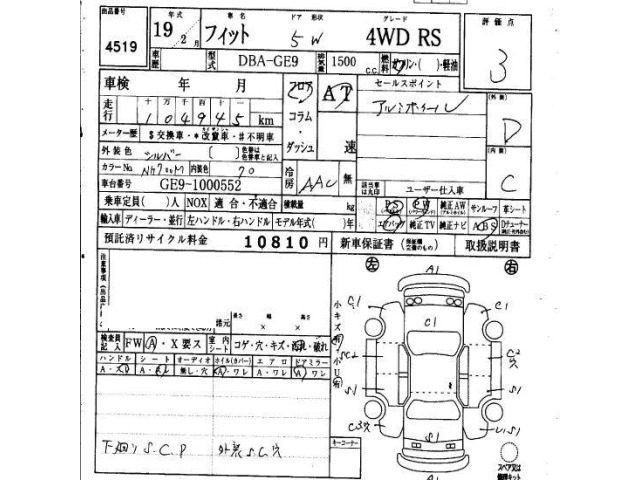 出品番号 年式 車名 ドア 形状 グレード 評価点
4519 19 2月 フィット 5W 4WD RS 3
車歴 型式 DBA-GE9 排気量 1500 c.c. 燃料 ガソリン・( )・軽油
車検 年 月 フロア AT セールスポイント
走行 十万 万 千 百 十 一 コラム アルミホイール 外装
104945 km D
メーター歴 $交換車・*改竄車・#不明車 ダッシュ 速
外装色 シルバー ( ) 色替は色替車と記入 内装
カラーNo. NH700M 内装色 70 冷房 AAC 無 ユーザー仕入車 C
車台番号 GE9-1000552
乗車定員( )人 NOX 適合・不適合 積載量 kg PS PW 純正AW サンルーフ 革シート
輸入車 ディーラー・並行 左ハンドル・右ハンドル モデル年式( )年 エアバッグ 純正TV 純正ナビ ABS Dチューナー
預託済リサイクル料金 10810円 新車保証書 取扱説明書
注意事項 左 A1 右
長さ 幅 高さ C1 C1
諸元 × × 小キズ有 C1
検査員記入 FW A・X要ス 室内シート コゲ・穴・キズ・汚れ・破れ 小U有 SC2 C2
ハンドル シート オーディオ ホイル(カバー) エアロ ドアミラー S1 S1
A・ス 無し・穴 A・ワレ A・ワレ A ワレ
C3 S1 S1
下廻り S.C.P 外装 S.C穴 キーコーナー スペア又は修理キット